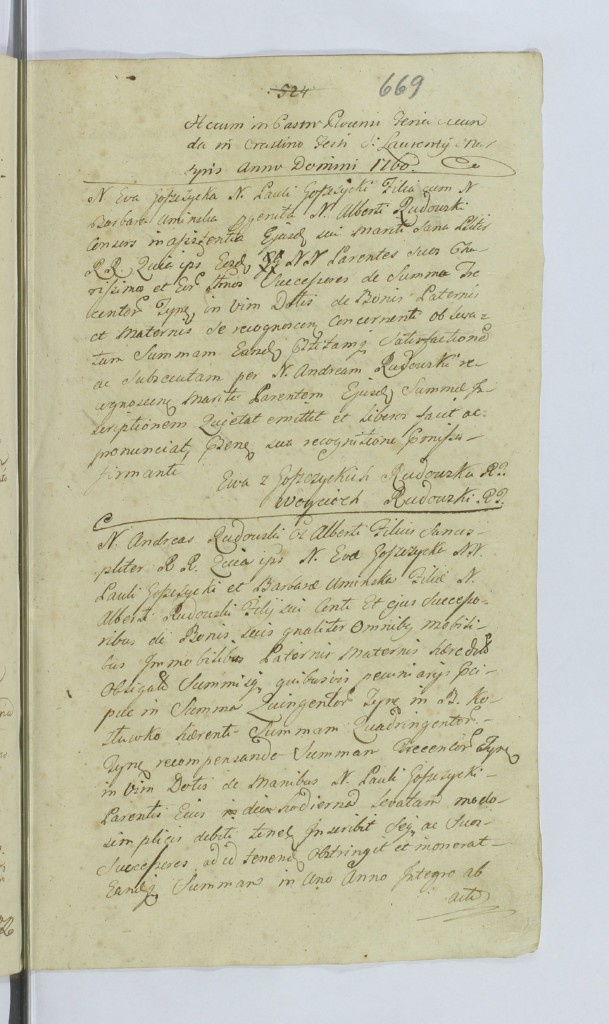 524
669
Actum in Castro Plocensi Feria secun
da in Crastino Festi S. Laurentÿ Mar
tyris Anno Domini 1760.
N. Eva Goszczycka N. Pauli Goszczycki Filia cum N
Barbara Uminska genita N. Alberti Rudowski
Consors in assistentia Ejusd sui Mariti Sana Pliter
R. R. Quia ips Eosd NN Parentes suos Cha-
rissimos et Eor Succesores de Summa Tre
centor Fnor in Vim Dotis de Bonis Paternis
et Maternis se recognoscen Concernenti ob leva-
tam Summam Eand Satisfactione
ac Subsecutam per N. Andream Rudowski re
cognoscen Mariti Parentem Ejusd Summæ In
scriptionem Quietat emittit et liberos facit ac
pronunciat, Præsen sua recognitione
firmante
Ewa z Goszczyckich Rudowska
Woyciech Rudowski
N. Andreas Rudowski Alberti Filius Sanus
pliter R R. Quia ips N. Eva Goszczycka NN.
Pauli Goszczycki et Barbaræ Uminska Filiæ N.
Alberti Rudowski Filÿ sui Conti Et ejus Succeso-
ribus de Bonis suis gnaliter Omnibq mobili-
bus Immobilibus Paternis Maternis hæredit
Obligat Summisq quibusvis pecuniarÿs
pue in Summa Quingentor Fnor in B. Ko-
ziuwko hærenti Summam Quadringentor.
Fnor recompensando Summam Trecentor Fnor
in Vim Dotis de Manibus N. Pauli Goszczycki
Parentis Ejus in die hodierna levatam modo
simplicis debiti tenet Inscribit Seq ac Suos
Succesores ad id tenend Obstringit et inonerat
Eandq Summam in Uno Anno Integro ab
actu